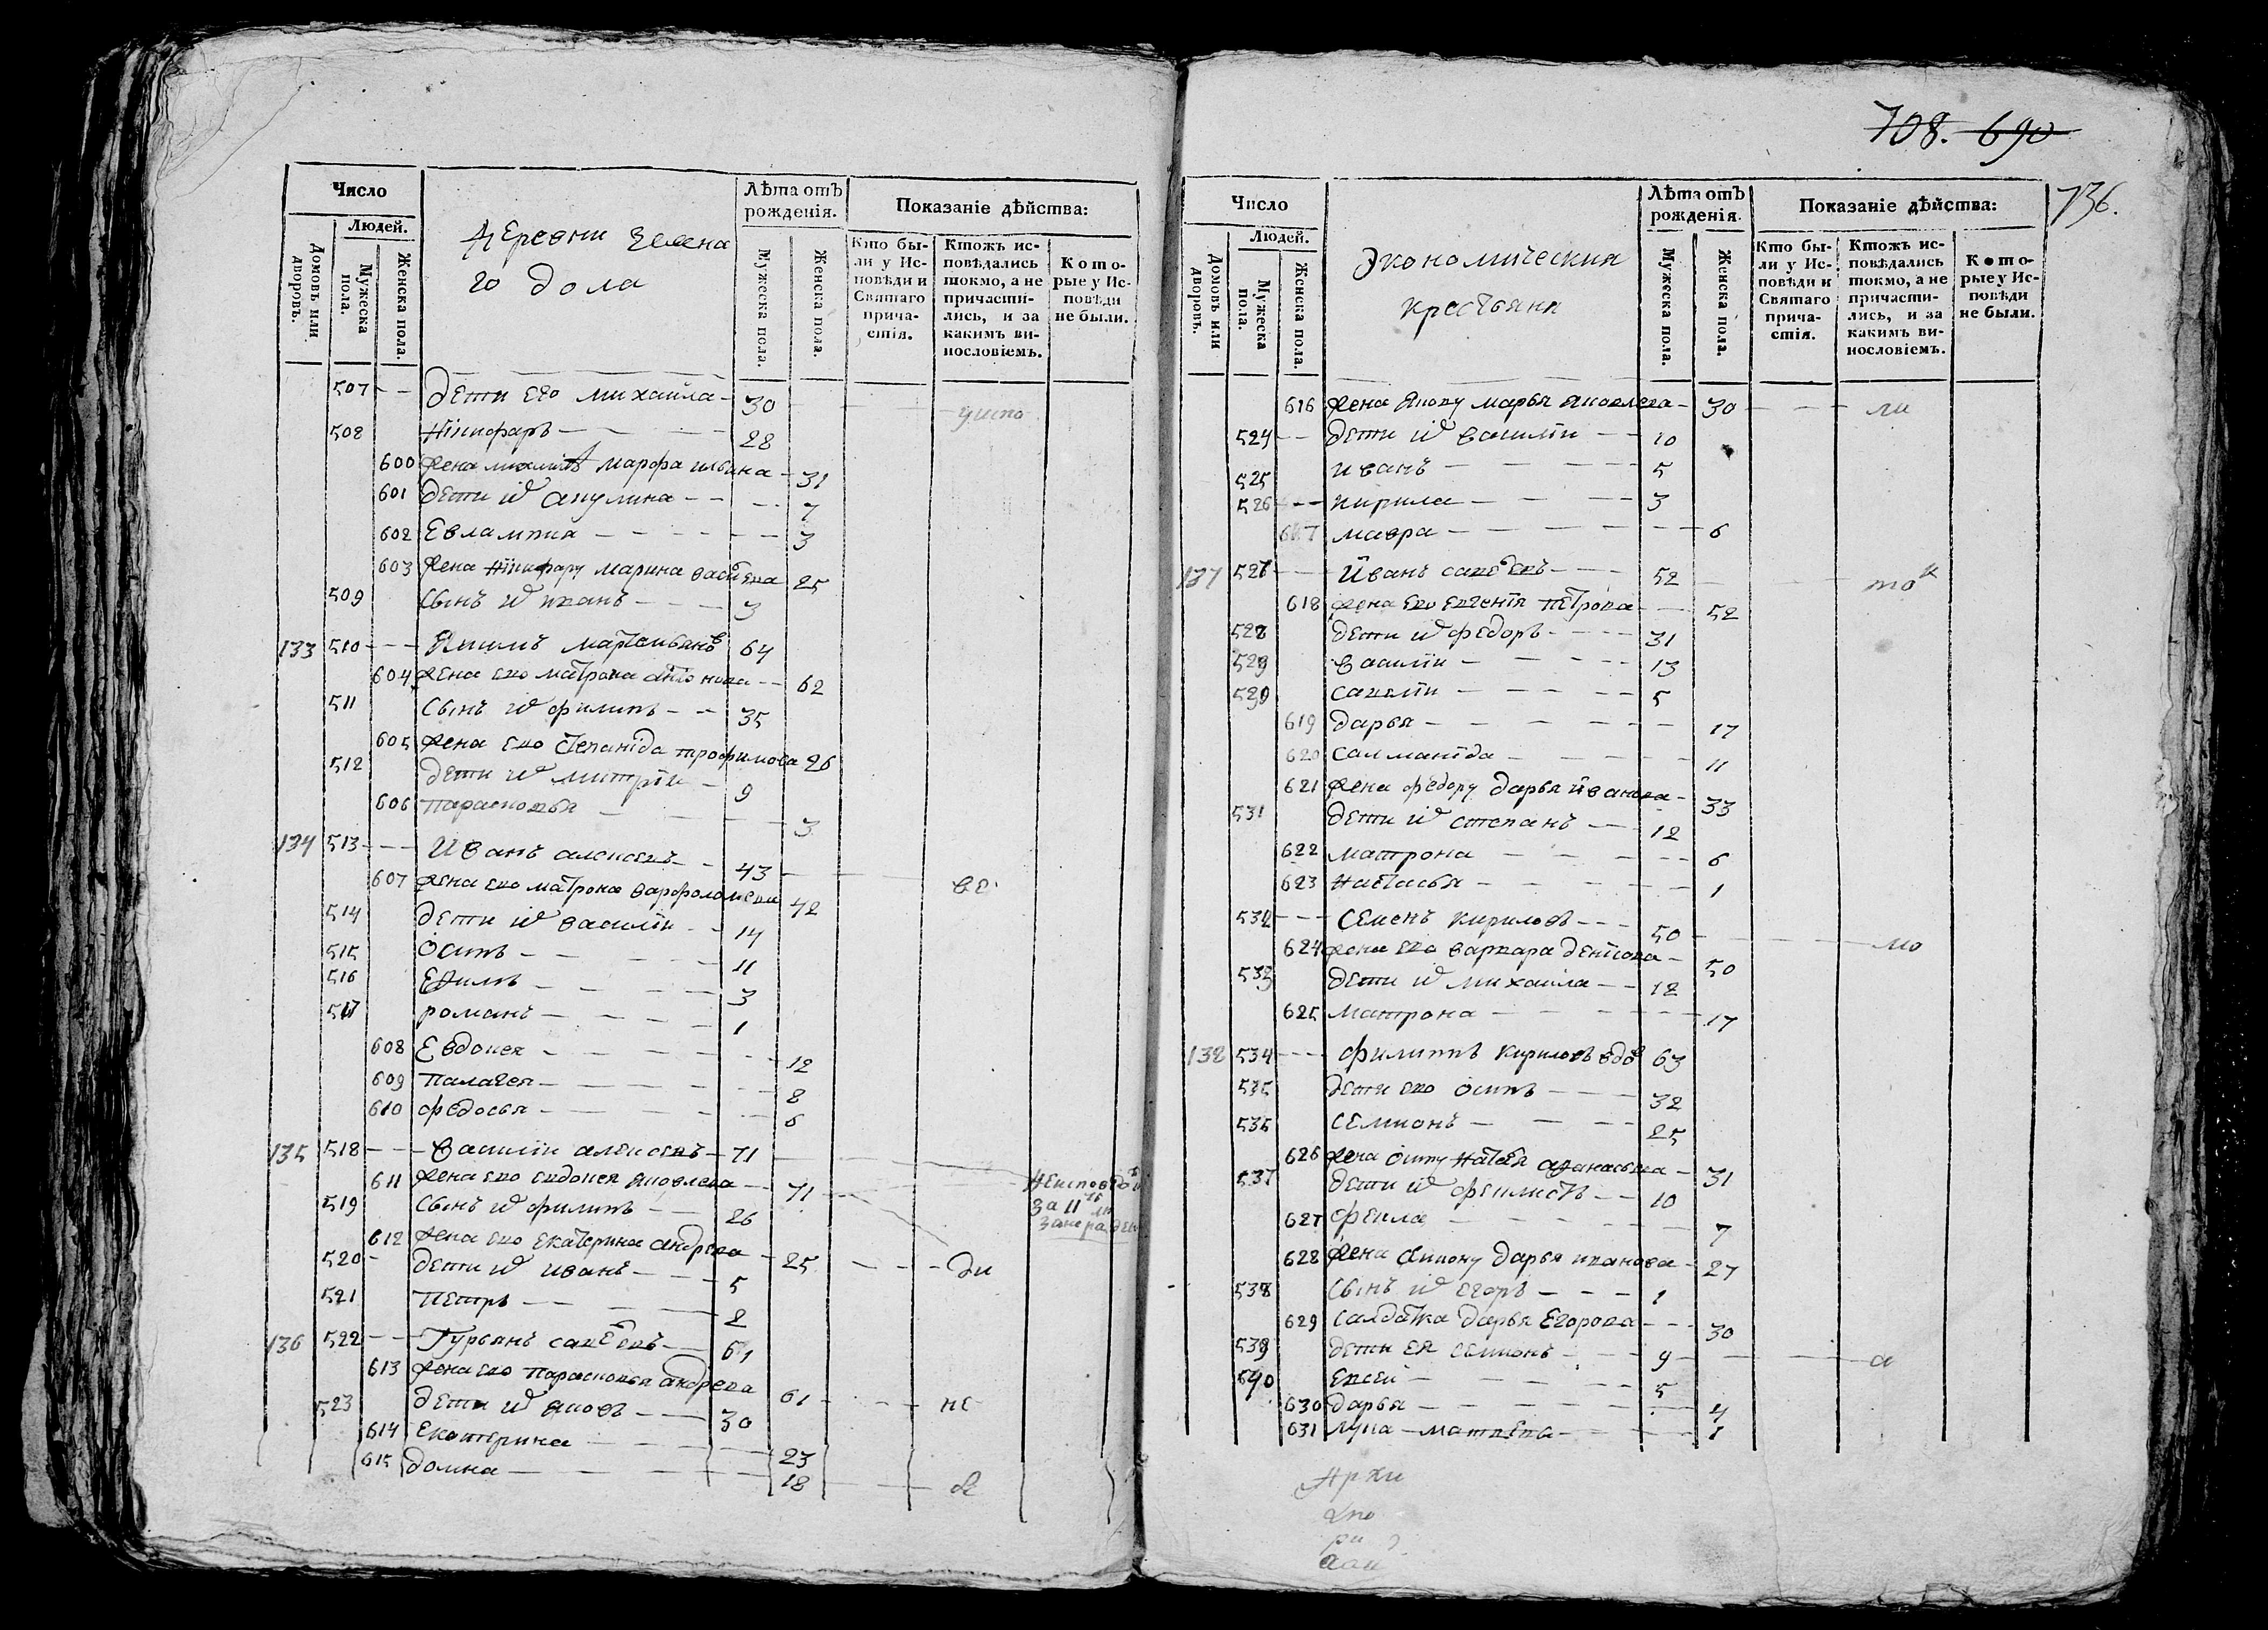 708. 690
736.
Число
Людей.
Домовъ или дворовъ.
Мужеска пола.
Женска пола.
Деревни Зелена
го дола
Лѣта отъ
рожденія.
Мужеска пола.
Женска пола.
Показаніе дѣйства:
Кто бы-
ли у Ис-
повѣди и
Святаго
прича-
стія.
Ктожъ ис-
повѣдались
токмо, а не
причасти-
лись, и за
какимъ ви-
нословіемъ.
Кото-
рые у Ис-
повѣди
не были.
507 Дети его михаила 30
508 Никифаръ 28
600 жена михаилѣ марфа ильина 31
601 Дети их акулина 7
602 Евлампия 3
603 жена Никифару марина васильева 25
509 Сынъ их иванъ 3
133 510 64
604 жена ево матрона антонова 62
511 Сынъ их филипъ 35
605 жена ево степанида трофимова 26
512 Дети их митріи 9
606 парасковья 3
134 513 Иванъ алексеевъ 43
607 жена ево матрона варфоломеева 42 ве
514 Дети их василіи 14
515 осипъ 11
516 Ефимъ 3
517 романъ 1
608 Евдокея 12
609 палагея 8
610 федосья 6
135 518 Василіи алексеевъ 71
611 жена ево евдокея яковлева 71
519 Сынъ их филипъ 26
612 жена ево екатерина андреева 25 ди
520 дети их иванъ 5
521 петръ 2
136 522 Гурьянъ савельевъ 61
613 жена ево парасковья андреева 61 не
523 дети их яковъ 30
614 екатерина 23
615 домна 18
Число
Людей.
Домовъ или дворовъ.
Мужеска пола.
Женска пола.
Экономическия
крестьяни
Лѣта отъ
рожденія.
Мужеска пола.
Женска пола.
Показаніе дѣйства:
Кто бы-
ли у Ис-
повѣди и
Святаго
прича-
стія.
Ктожъ ис-
повѣдались
токмо, а не
причасти-
лись, и за
какимъ ви-
нословіемъ.
Кото-
рые у Ис-
повѣди
не были.
616 жена якову марья яковлева 30 ли
524 дети их василіи 10
525 иванъ 5
526 кирила 3
617 мавра 6
137 527 Иванъ савельевъ 52 то
618 жена ево евгенія петрова 52
528 дети их федоръ 31
529 василіи 13
530 савеліи 5
619 дарья 17
620 салманида 11
621 жена федору дарья иванова 33
531 дети их степанъ 12
622 матрона 6
623 настасья 1
532 Семенъ кириловъ 50 мо
624 жена ево варвара денисова 50
533 дети их михаила 12
625 матрона 17
138 534 филиппъ кириловъ вдов 63
535 дети ево осипъ 32
536 Семионъ 25
626 жена осипу 31
537 дети их феклистъ 10
627 фекла 7
628 жена симону дарья иванова 27
538 Сынъ их егоръ 1
629 салдатка дарья Егорова 30
539 дети ея семионъ 9 а
540 евсей 5
630 дарья 4
631 лука матвева 1